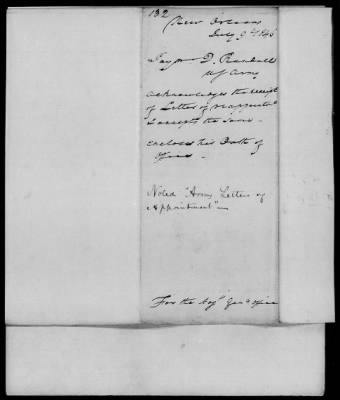 132
New Orleans
July 9th 1846
D. Randall
US Army
acknowledges the receipt
of Letter of reappointmt
& accepts the same -
encloses his Oath of
Office -
Noted "Army Letters of
Appointment" -
For the Adjt Genl's Office